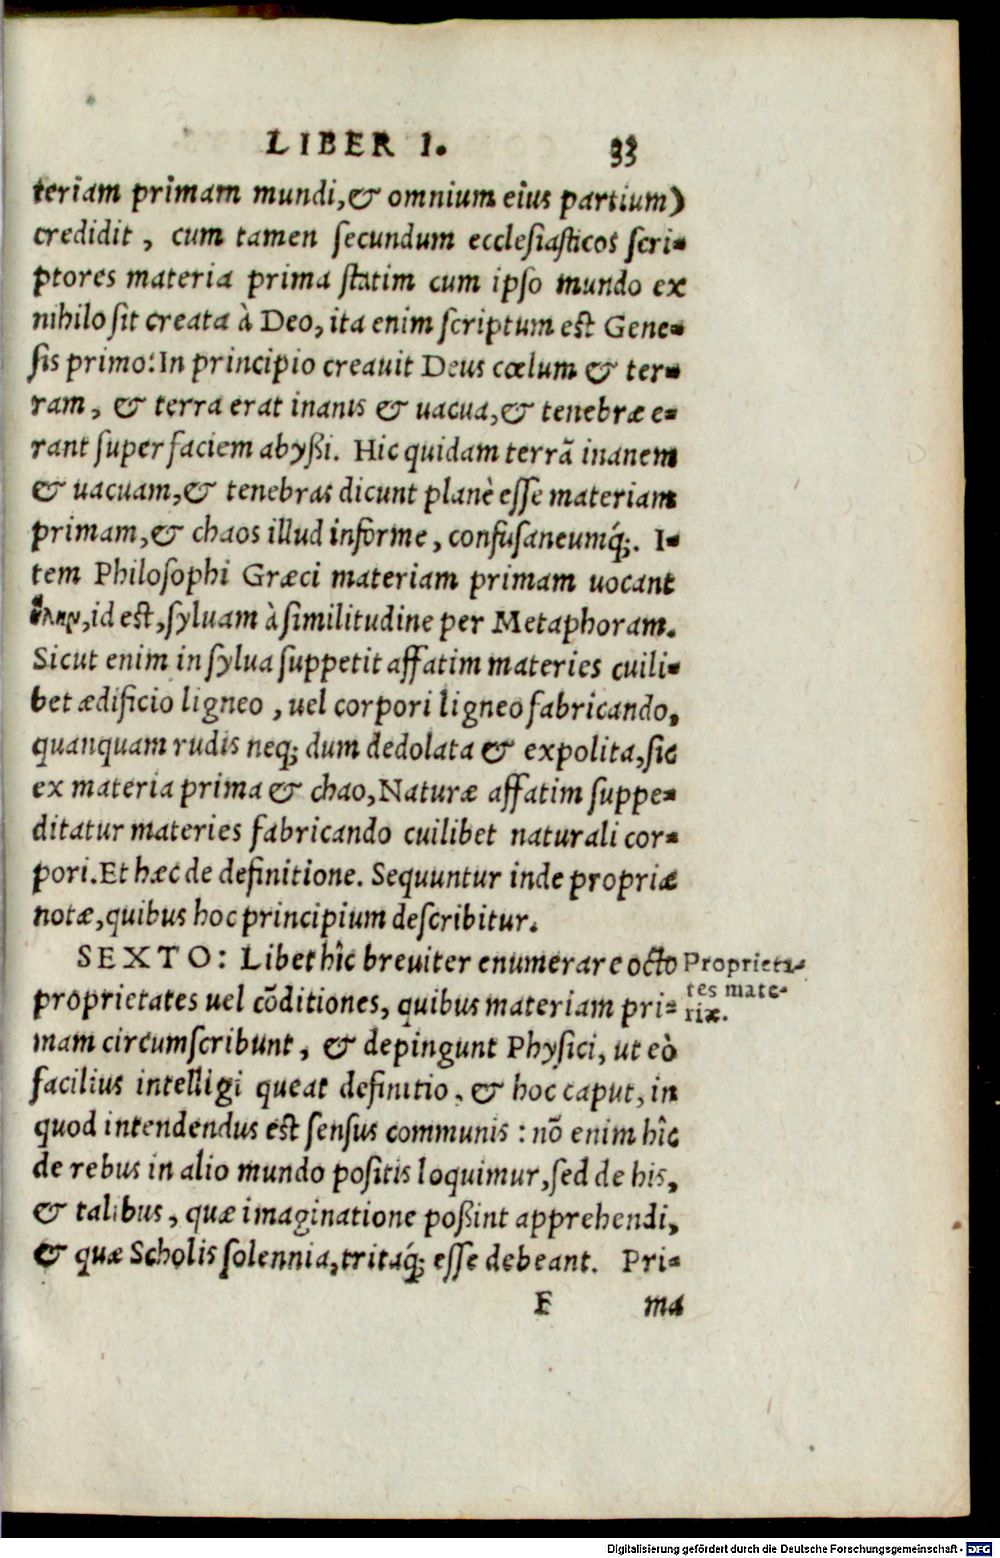 LIBER I. 33
teriam primam mundi, & omnium eius partium)
credidit, cum tamen ſecundum eccleſiaſticos ſcri-
ptores materia prima ſtatim cum ipſo mundo ex
nihilo ſit creata à Deo, ita enim ſcriptum eſt Gene-
ſis primo: In principio creauit Deus cœlum & ter-
ram, & terra erat inanis & uacua, & tenebræ e-
rant ſuper faciem abyßi. Hic quidam terrã inanem
& uacuam, & tenebras dicunt planè eſſe materiam
primam, & chaos illud informe, confuſaneumq́;. I-
tem Philoſophi Græci materiam primam uocant
ὕλην, id eſt, ſyluam à ſimilitudine per Metaphoram.
Sicut enim in ſylua ſuppetit affatim materies cuili-
bet ædificio ligneo, uel corpori ligneo fabricando,
quanquam rudis neq; dum dedolata & expolita, ſic
ex materia prima & chao, Naturæ affatim ſuppe-
ditatur materies fabricando cuilibet naturali cor-
pori. Et hæc de definitione. Sequuntur inde propriæ
notæ, quibus hoc principium deſcribitur.
SEXTO: Libet hîc breuiter enumerare octo
Proprieta-
tes mate-
riæ.
proprietates uel cõditiones, quibus materiam pri-
mam circumſcribunt, & depingunt Phyſici, ut eò
facilius intelligi queat definitio, & hoc caput, in
quod intendendus eſt ſenſus communis: nõ enim hîc
de rebus in alio mundo poſitis loquimur, ſed de his,
& talibus, quæ imaginatione poßint apprehendi,
& quæ Scholis ſolennia, tritaq́; eſſe debeant. Pri-
F ma
Digitalisierung gefördert durch die Deutsche Forschungsgemeinschaft - DFG